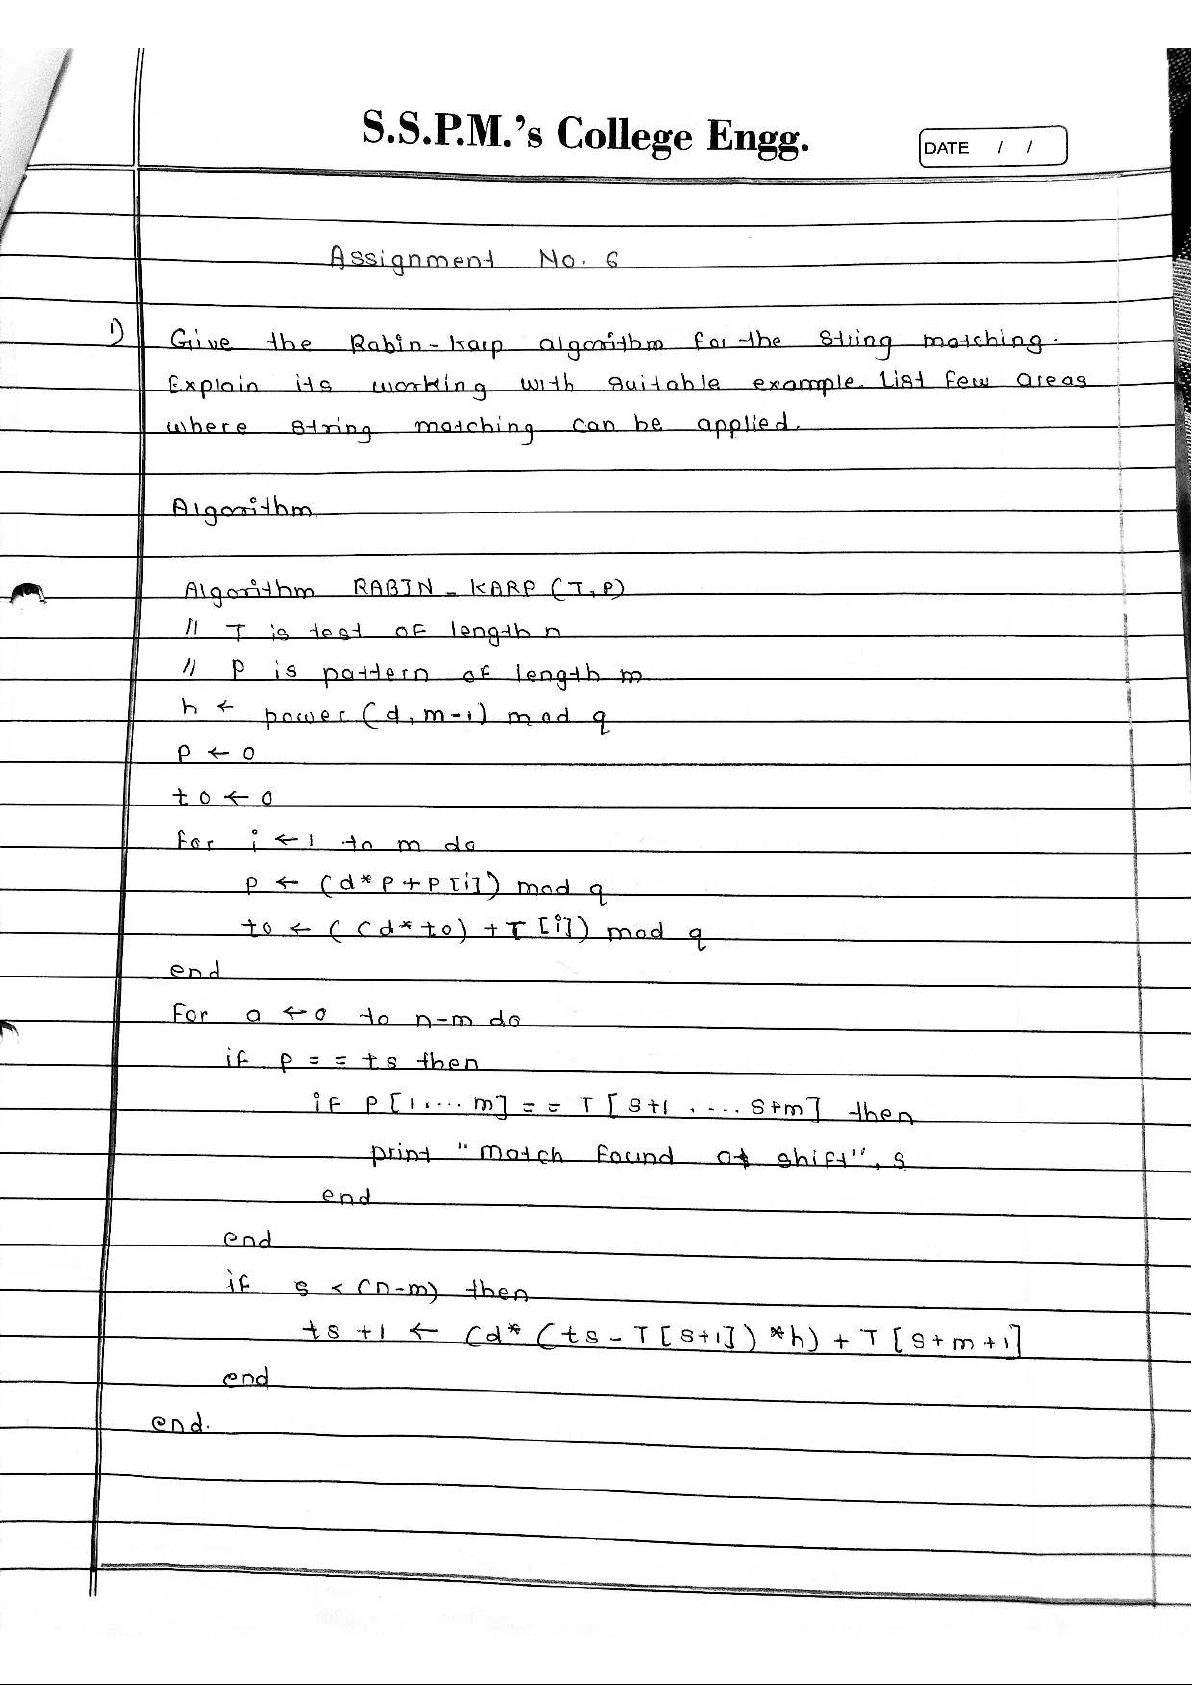 S.S.P.M.'s College Engg.
DATE / /
Assignment No. 6
1) Give the Rabin-karp algorithm for the string matching.
Explain its working with suitable example. List few areas
where string matching can be applied.
Algorithm
Algorithm RABIN - KARP (T, P)
// T is test of length n
// P is pattern of length m
h ← power (d, m-1) mod q
p ← 0
t0 ← 0
for i ← 1 to m do
p ← (d* p + p [i]) mod q
t0 ← ( (d* t0) + T [i]) mod q
end
For a ← 0 to n-m do
if p == ts then
if P [1, .... m] == T [ s+1, .... s+m] then
print "match found at shift", s
end
end
if s < (n-m) then
ts +1 ← (d* (ts - T [s+1]) *h) + T [s+m+1]
end
end.